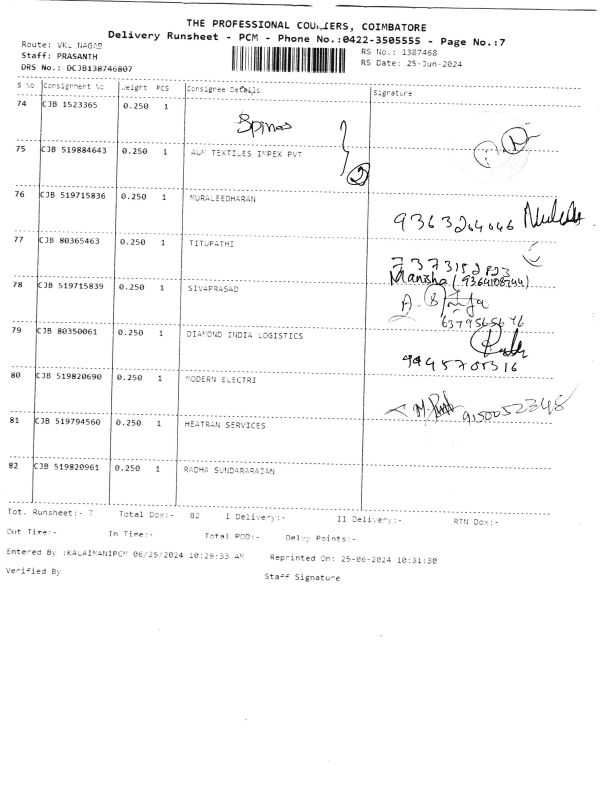 THE PROFESSIONAL COURIERS, COIMBATORE
Delivery Runsheet - PCM - Phone No.:0422-3505555 - Page No.:7
Route: VKL NAGAR
Staff: PRASANTH
DRS No.: DCJB138746807
RS No.: 1387468
RS Date: 25-Jun-2024
S No Consignment No Weight PCS Consignee Details Signature
74 CJB 1523365 0.250 1
Spinos
75 CJB 519884643 0.250 1 AUM TEXTILES IMPEX PVT
2
76 CJB 519715836 0.250 1 MURALEEDHARAN
9363204046
77 CJB 80365463 0.250 1 TITUPATHI
Manisha (9364108744)
78 CJB 519715839 0.250 1 SIVAPRASAD
79 CJB 80350061 0.250 1 DIAMOND INDIA LOGISTICS
9945705316
80 CJB 519820690 0.250 1 MODERN ELECTRI
9150052348
81 CJB 519794560 0.250 1 HEATRAN SERVICES
82 CJB 519820961 0.250 1 RADHA SUNDARARAJAN
Tot. Runsheet:- 7 Total Dox:- 82 I Delivery:- II Delivery:- RTN Dox:-
Out Time:- In Time:- Total POD:- Delvy Points:-
Entered By :KALAIMANIPCM 06/25/2024 10:29:33 AM Reprinted On: 25-06-2024 10:31:30
Verified By Staff Signature